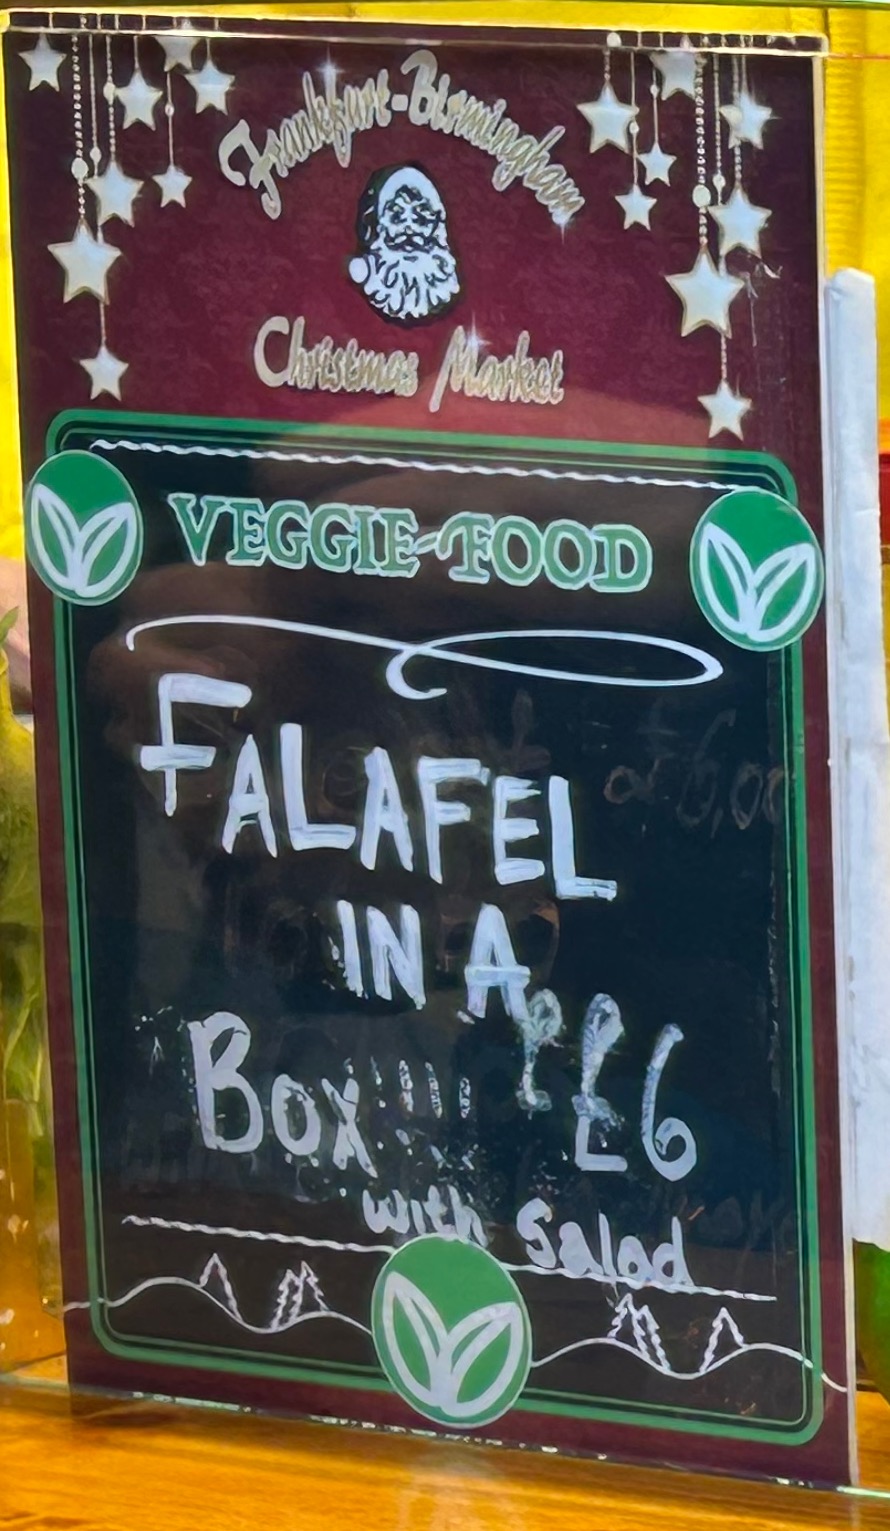 Frankfurt-Birmingham
Christmas Market
VEGGIE-FOOD
FALAFEL
IN A
BOX!!!! £6
with Salad